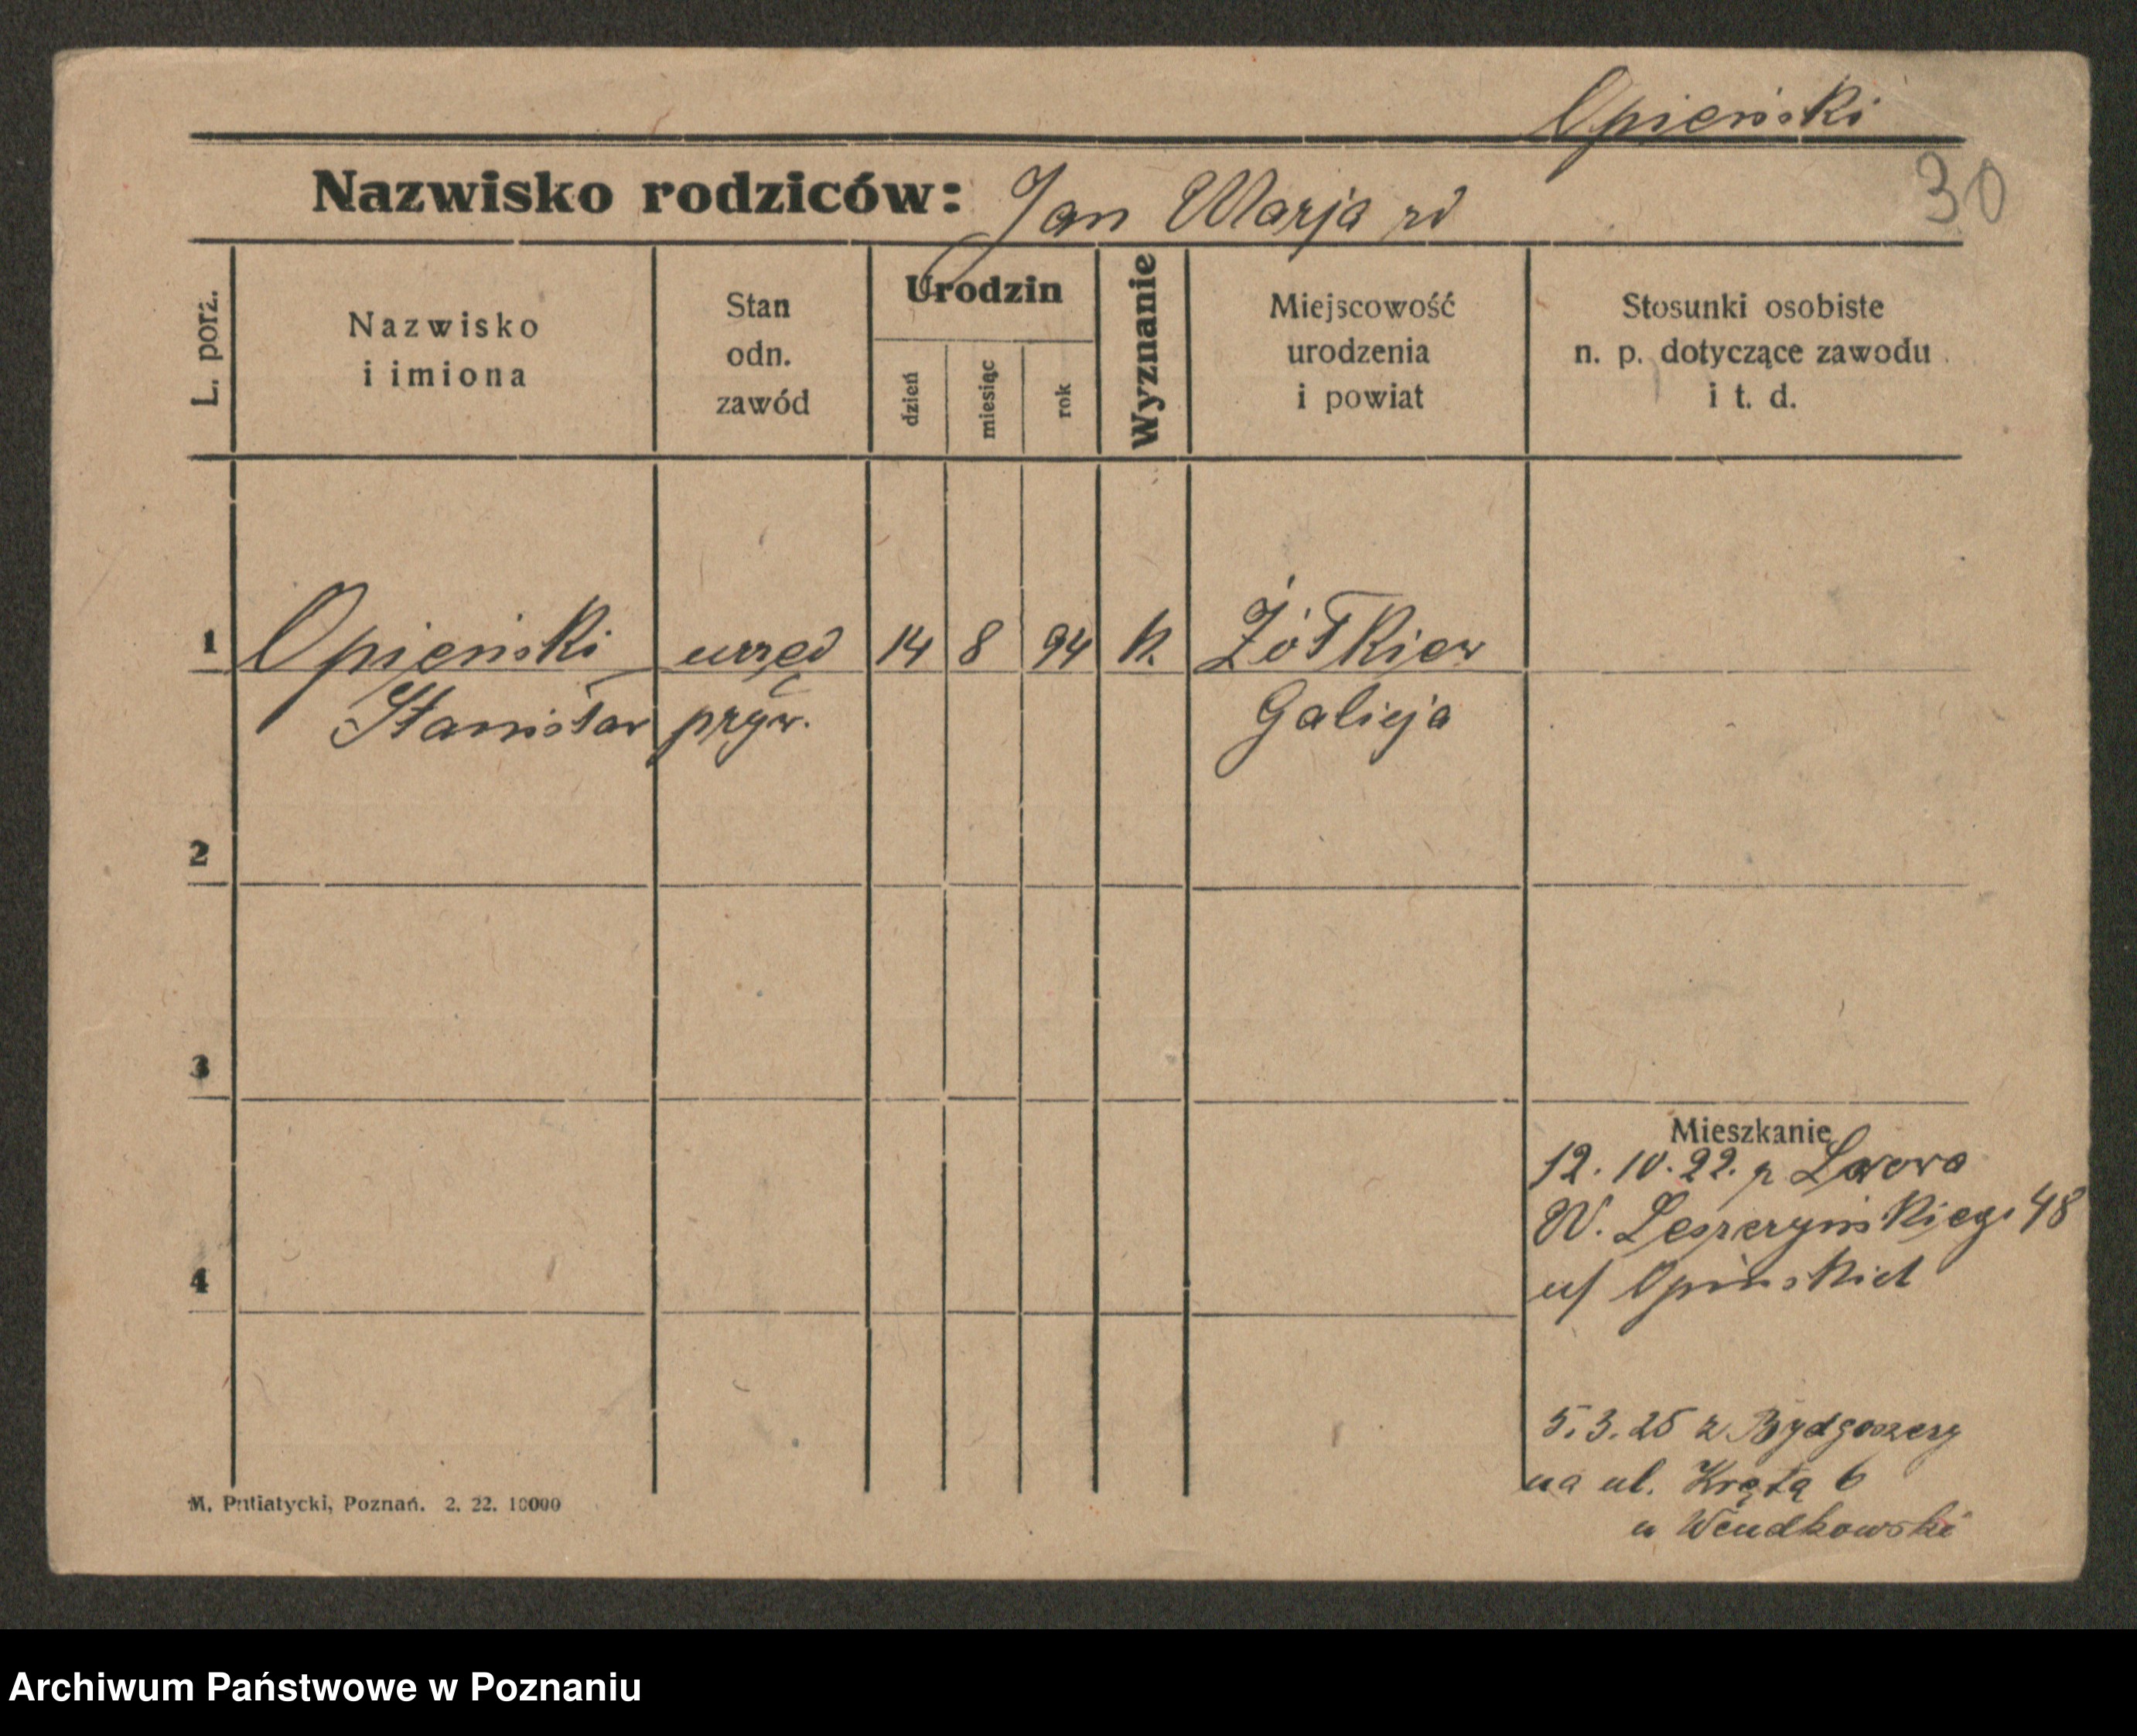 Opieński
Nazwisko rodziców: Jan Marja rd
30
L. porz.
Nazwisko
i imiona
Stan
odn.
zawód
Urodzin
dzień
miesiąc
rok
Wyznanie
Miejscowość
urodzenia
i powiat
Stosunki osobiste
n. p. dotyczące zawodu
i t. d.
1 Opieński urzęd 14 8 94 k. Żółkiew
Stanisław pryw. Galicja
2
3
Mieszkanie
12. 10. 22. z Lwowa
W. Leszczyńskiego 48
4
u/
5. 3. 25 z Bydgoszczy
na ul. Krętą 6
u Wendkowski
M. Putiatycki, Poznań. 2. 22. 10000
Archiwum Państwowe w Poznaniu